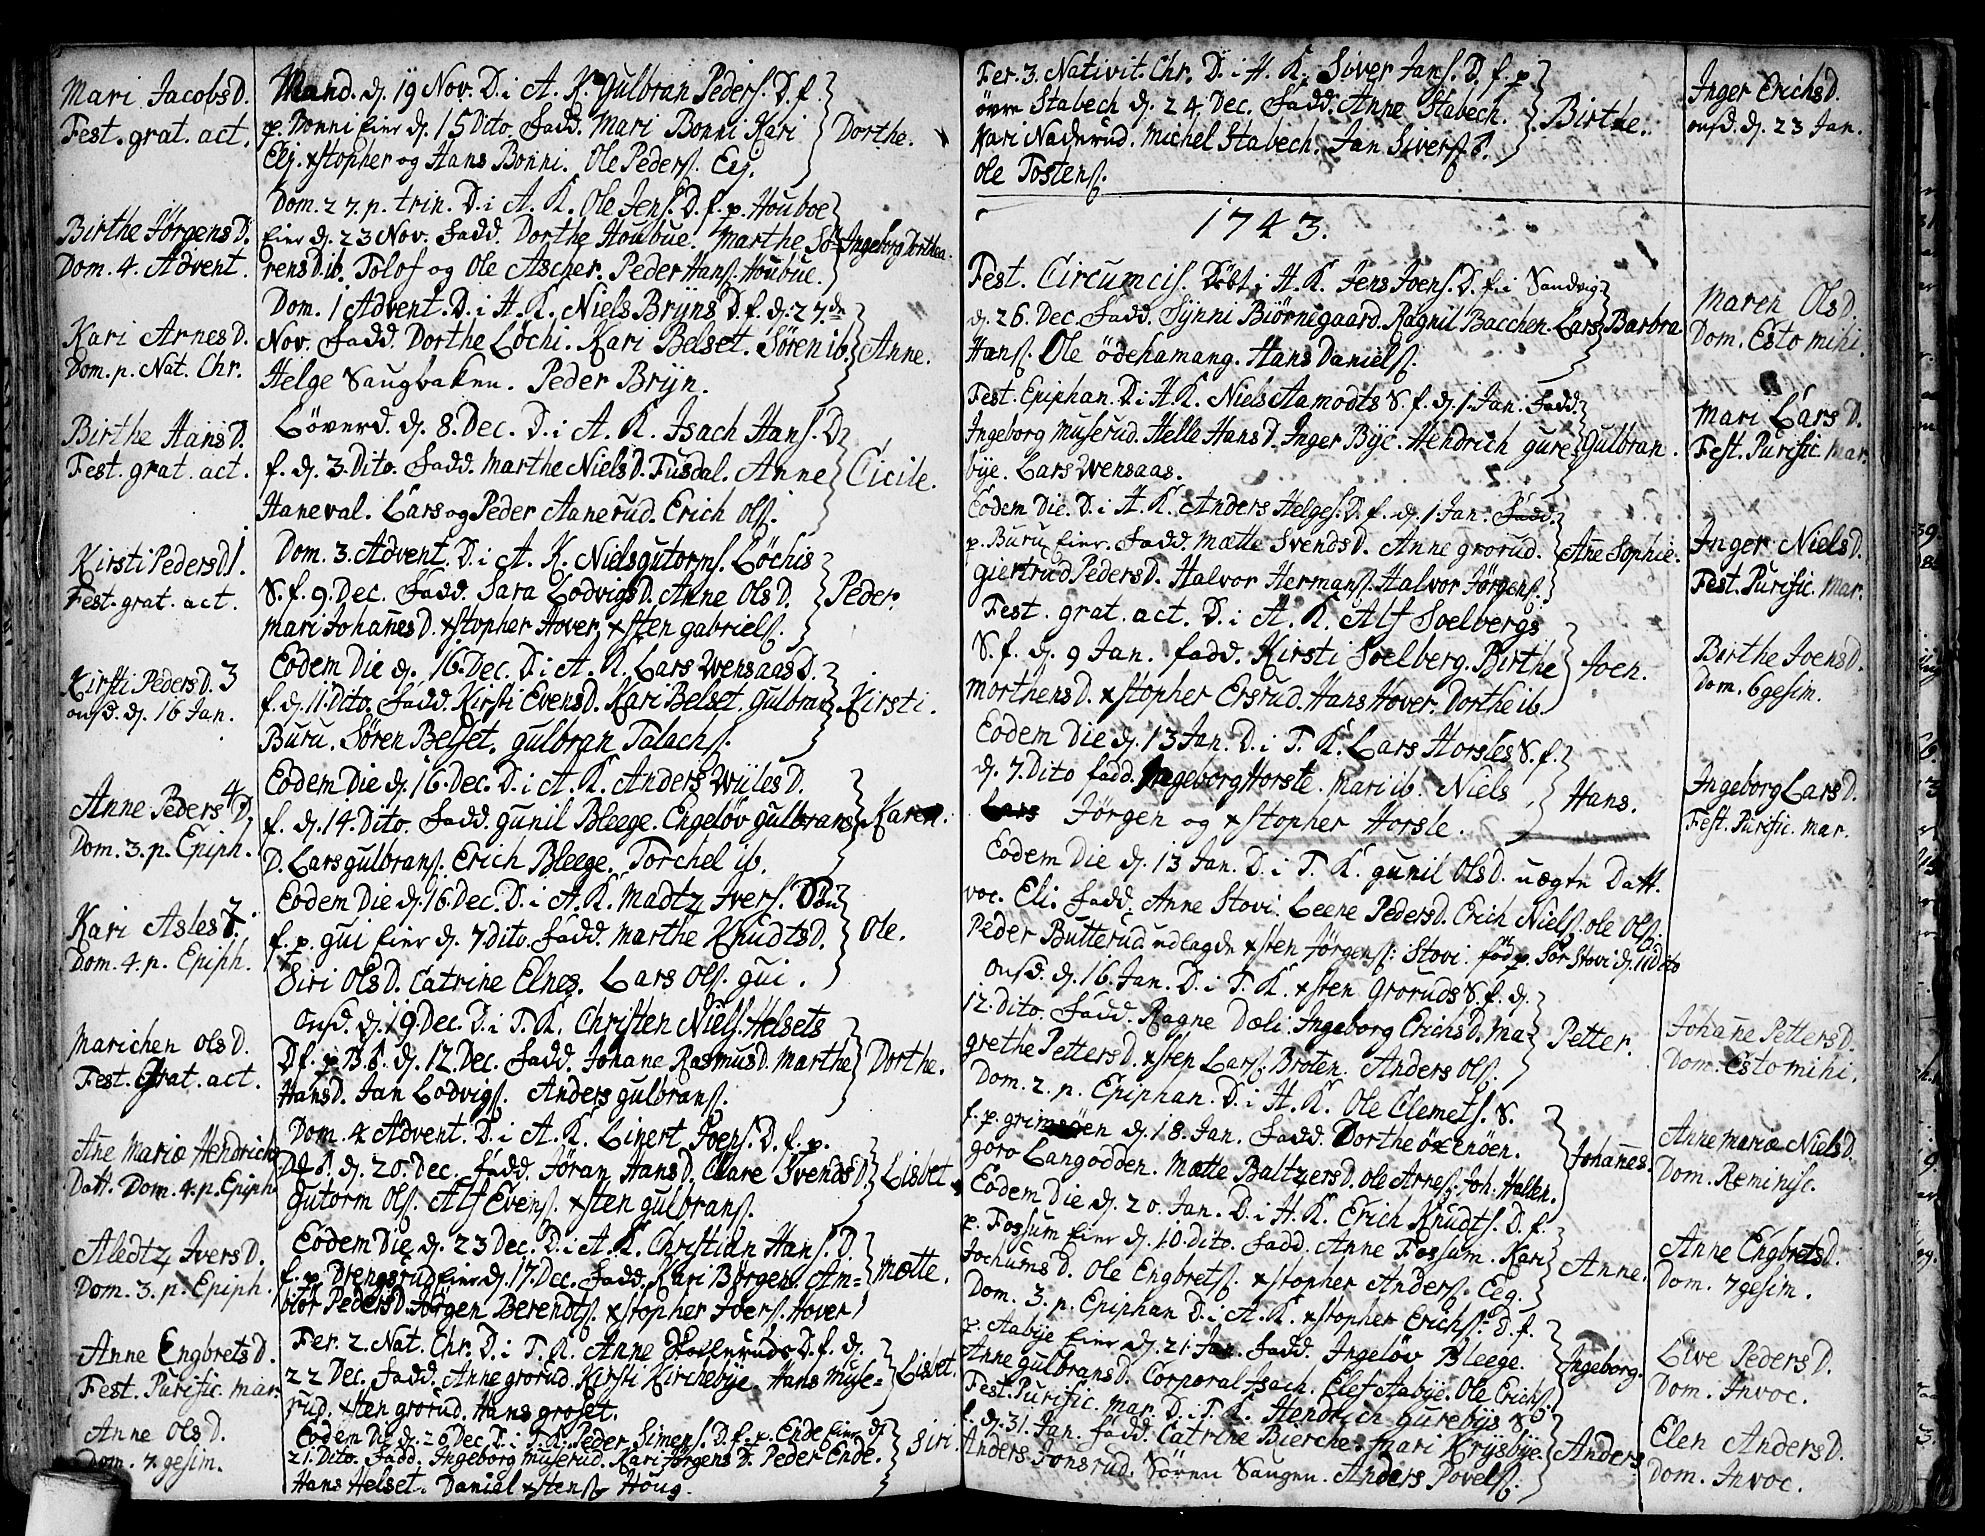 Mari Jacobs D.
Fest. grat. act.
Mand. d. 19 Nov. D. i A. K. Gulbran Peders. D. f.
p. Bonni Eier d. 15 Dito. Fadd. Mari Bonni Kari
Eej. xstopher og Hans Bonni. Ole Peders. Eej.
Dorthe.
Birthe Jörgens D.
Dom. 4. Advent.
Dom. 27. p. trin. D. i A. K. Ole Jens. D. f. p. Houboe
Eier d. 23 Nov. Fadd. Dorthe Houbue. Marthe Sö-
rens D. ib. Tolof og Ole Ascher. Peder Hans. Houbue.
Ingeborg Dorthea.
Kari Arnes D.
Dom. p. Nat. Chr.
Dom. 1 Advent. D. i H. K. Niels Bryns D. f. d. 27. de
Nov. Fadd. Dorthe Löchi. Kari Belset. Sören ib.
Helge Saugbaken. Peder Bryn.
Anne.
Birthe Hans D.
Fest. grat. act.
Löverd. d. 8. Dec. D. i A. K. Isach Hans. D.
f. d. 3. Dito. Fadd. Marthe Niels D. Fusdal. Anne
Haneval. Lars og Peder Aanerud. Erich Ols.
Cicile.
Kirsti Peders D. 1.
Fest. grat. act.
Dom. 3. Advent. D. i A. K. Niels Gutorms. Löchis
S. f. 9. Dec. Fadd. Sara Lodvigs D. Anne Ols D.
Mari Johanes D. xstopher Hover, xsten Gabriels.
Peder.
Kirsti Peders D. 3
onsd. d. 16 Jan.
Eodem Die d. 16. Dec. D. i A. K. Lars Wensaas D.
f. d. 11. Dito. Fadd. Kirsti Evens D. Kari Belset. Gulbran
Buru. Sören Belset. Gulbran Talachs.
Kirsti.
Anne Peders D. 4
Dom. 3. p. Epiph.
Eodem Die d. 16. Dec. D. i A. K. Anders Wüles D.
f. d. 14. Dito. Fadd. Gunil Bleege. Engelöv Gulbrans
D. Lars Gulbrans. Erich Bleege. Torchel ib.
Karen.
Kari Asles D. 7.
Dom. 4. p. Epiph.
Eodem Die d. 16. Dec. D. i A. K. Madtz Ivers. Sön
f. p. Gui Eier d. 7 Dito. Fadd. Marthe Knudts D.
Siri Ols D. Catrine Elnes. Lars Ols. Gui.
Ole.
Marichen Ols D.
Fest. Grat. act.
Onsd. d. 19. Dec. D. i T. K. Christen Niels. Helsets
D. f. p. B. d. 12. Dec. Fadd. Johane Rasmus D. Marthe
Hans D. Jan Lodvigs. Anders Gulbrans.
Dorthe.
Ane Mariæ Hendrichs
Datt. Dom. 4. p. Epiph.
Dom. 4 Advent. D. i A. K. Linert Joens. D. f. p.
d. 20. Dec. Fadd. Jöran Hans D. Clare Svends D.
Gutorm Ols. Alf Evens. xsten Gulbrans.
Lisbet.
Aledtz Ivers D.
Dom. 3. p. Epiph.
Eodem Die d. 23 Dec. D. i A. K. Christian Hans. D.
f. p. Drengsrud Eier d. 17. Dec. Fadd. Kari Börgen. Am=
biör Peders D. Jörgen Berendts. xstopher Ivers. Hover
Mætte.
Anne Engbrets D.
Fest. Purific. Mar.
Fer. 2. Nat. Chr. D. i T. K. Anne D. f. d.
22 Dec. Fadd. Anne Grorud. Kirsti Kirchebye. Hans Muse=
rud. xsten Grorud. Hans Groset.
Lisbet.
Anne Ols D.
Dom. 7 gesim.
Eodem Die d. 26 Dec. D. i T. K. Peder Simens. D. f. p. Ende Eier d.
21. Dito. Fadd. Ingeborg Muserud. Kari Jörgens D. Peder Ende.
Hans Helset. Daniel xstens. Houg.
Siri.
Fer. 3. Nativit. Chr. D. i H. K. Siver Jans. D. f. p.
övre Stabech d. 24. Dec. Fadd. Anne Stabech.
Kari Naderud. Michel Stabech. Jan Sivers.
Ole Tostens.
Birthe.
Inger Erichs D.
onsd. d. 23 Jan.
1743.
Fest. Circumcis. Döbt i H. K. Jens Joens. D. f. i Sandvig
d. 26. Dec. Fadd. Synni Biörnegaard. Ragnil Bacchen. Lars
Hans. Ole Ödehamang. Hans Daniels.
Barbra
Maren Ols D.
Dom. Esto mihi.
Fest. Epiphan. D. i H. K. Niels Aamodts S. f. d. 1. Jan. Fadd.
Ingeborg Muserud. Helle Hans D. Inger Bye. Hendrich Gure
bye. Lars Wensaas.
Gulbran.
Mari Lars D.
Fest. Purific. Mar.
Eodem Die. D. i H. K. Anders Helges. D. f. d. 1 Jan. Fadd.
p. Buru Eier. Fadd. Mætte Svends D. Anne Grorud.
Giertrud Peders D. Halvor Hermans. Halvor Jörgens.
Ane Sophie.
Inger Niels D.
Fest. Purific. Mar.
Fest. grat. act. D. i A. K. Alf Soelbergs
S. f. d. 9 Jan. Fadd. Kirsti Soelberg. Birthe
Morthens D. xstopher Ersrud. Hans Hover. Dorthe ib.
Joen.
Birthe Joens D.
Dom. 6gesim.
Eodem Die d. 13 Jan. D. i T. K. Lars Horsles S. f.
d. 7. Dito Fadd. Ingeborg Horsle. Mari ib. Niels
Lars Jörgen og xstopher Horsle.
Hans.
Ingeborg Lars D.
Fest. Purific. Mar.
Eodem Die d. 13 Jan. D. i T. K. Gunil Ols D. uægte Datt.
voc. Eli. Fadd. Anne Stovi. Leene Peders D. Erich Niels. Ole Ols.
Peder Butterud udlagde xsten Jörgens: Stovi. föd p. Sör Stovi d. 11 Dito
Onsd. d. 16. Jan. D. i T. K. xsten Groruds S. f. d.
12. Dito. Fadd. Ragne Dæli. Ingeborg Erichs D. Ma-
grethe Petters D. xsten Lars. Broten. Anders Ols.
Petter.
Johane Petters D.
Dom. Esto mihi.
Dom. 2. p. Epiphan. D. i H. K. Ole Clemets. S.
f. p. Grimsöen d. 18. Jan. Fadd. Dorthe Öxenöen.
Goro Langodden. Mætte Baltzers D. Ole Arnes. Joh. Hallen.
Johanes.
Anne Mariæ Niels D.
Dom. Reminisc.
Eodem Die d. 20. Jan. D. i H. K. Erich Knudts. D. f.
p. Fossum Eier d. 10. Dito. Fadd. Anne Fossum. Kari
Jochums D. Ole Engbrets. xstopher Anders. Eeg.
Anne.
Anne Engbrets D.
Dom. 7gesim.
Dom. 3. p. Epiphan. D. i A. K. xstopher Erichs. D. f.
p. Aabye Eier d. 21. Jan. Fadd. Ingelöv Bleege.
Anne Gulbrans D. Corporal Isach. Elef Aabye. Ole Erichs.
Ingeborg.
Live Peders D.
Dom. Invoc.
Fest. Purific. Mar. D. i T. K. Hendrich Gurebys S.
f. d. 31. Jan. Fadd. Catrine Bierche. Mari Krysbye.
Anders Jonsrud. Sören Saugen. Anders Povels.
Anders.
Elen Anders D.
Dom. Invoc.